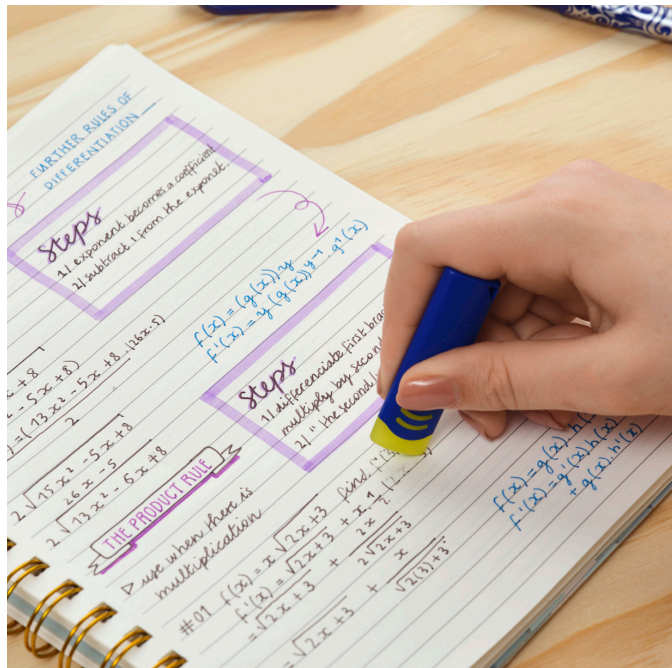 FURTHER RULES OF
DIFFERENTIATION
Steps
1/ exponent becomes a coefficient
2/ subtract 1 from the exponet.
f(x) = (g(x))y
f'(x) = y(g(x))y-1 . g'(x)
Steps
1/ differenciate first
multiply by second
2/ " the second
x + 8
2 - 5x + 8)
) = (13x2 - 5x + 8 . (26x-5)
2
2√15x2 - 5x + 8
26x - 5
2√13x2 - 6x + 8
THE PRODUCT RULE
▷ use when there is
multiplication
#01 f(x) = x√2x+3 find
f'(x) = √2x+3 + x
= √2x+3 + 2x
2√2x+3
= √2x+3 + x
√2(3)+3
f(x) = g(x).h(
f'(x) = g'(x)h(x)
+ g(x).h'(x)